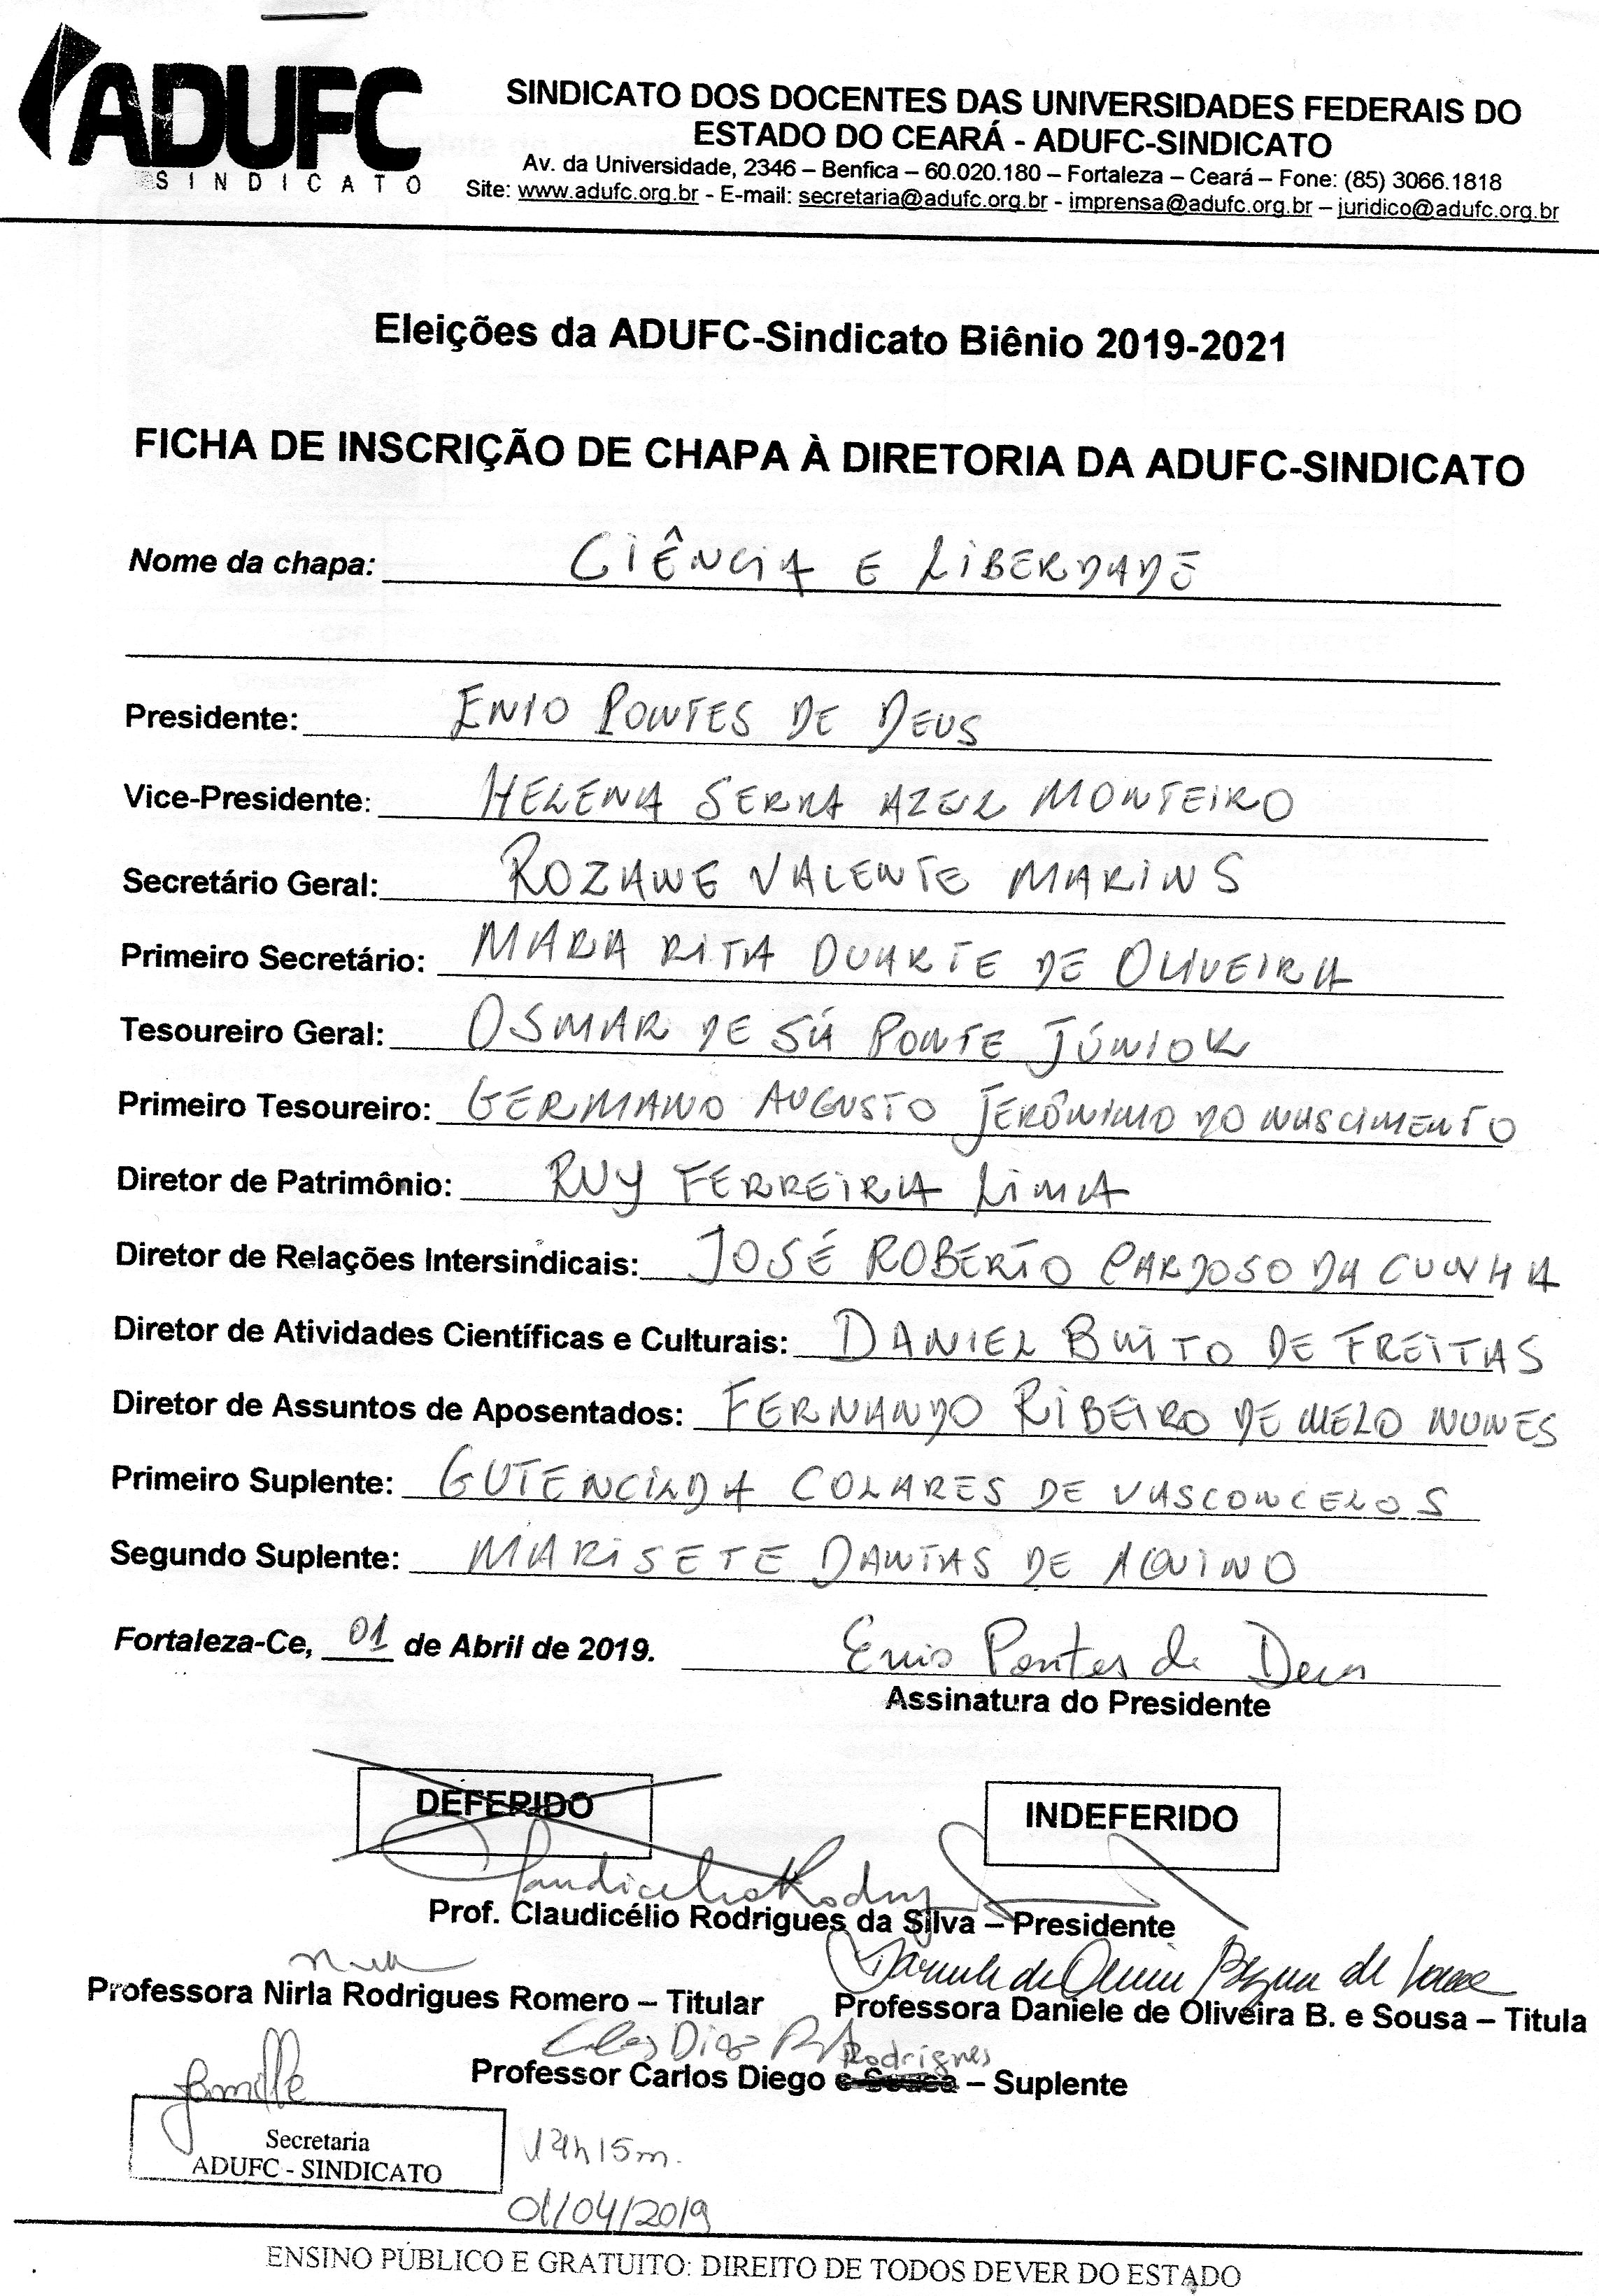 ADUFC
SINDICATO
SINDICATO DOS DOCENTES DAS UNIVERSIDADES FEDERAIS DO
ESTADO DO CEARÁ - ADUFC-SINDICATO
Av. da Universidade, 2346 – Benfica – 60.020.180 – Fortaleza – Ceará – Fone: (85) 3066.1818
Site: www.adufc.org.br - E-mail: secretaria@adufc.org.br - imprensa@adufc.org.br – juridico@adufc.org.br
Eleições da ADUFC-Sindicato Biênio 2019-2021
FICHA DE INSCRIÇÃO DE CHAPA À DIRETORIA DA ADUFC-SINDICATO
Nome da chapa: CIÊNCIA E LIBERDADE
Presidente: ENIO PONTES DE DEUS
Vice-Presidente: HELENA SERRA AZUL MONTEIRO
Secretário Geral: ROZANE VALENTE MARINS
Primeiro Secretário: MARIA RITA DUARTE DE OLIVEIRA
Tesoureiro Geral: OSMAR DE SÁ PONTE JÚNIOR
Primeiro Tesoureiro: GERMANO AUGUSTO JERÔNIMO DO NASCIMENTO
Diretor de Patrimônio: RUY FERREIRA LIMA
Diretor de Relações Intersindicais: JOSÉ ROBERTO CARDOSO DA CUNHA
Diretor de Atividades Científicas e Culturais: DANIEL BRITO DE FREITAS
Diretor de Assuntos de Aposentados: FERNANDO RIBEIRO DE MELO NUNES
Primeiro Suplente: GUTENCILDA COLARES DE VASCONCELOS
Segundo Suplente: MARISETE DANTAS DE AQUINO
Fortaleza-Ce, 01 de Abril de 2019. Enio Pontes de Deus
Assinatura do Presidente
DEFERIDO INDEFERIDO
Claudicélio Rodrigues
Prof. Claudicélio Rodrigues da Silva – Presidente
Professora Nirla Rodrigues Romero – Titular Professora Daniele de Oliveira B. e Sousa – Titula
Carlos Diego Rodrigues
Professor Carlos Diego e Sousa – Suplente
Secretaria
ADUFC - SINDICATO
17h15m.
01/04/2019
ENSINO PÚBLICO E GRATUITO: DIREITO DE TODOS DEVER DO ESTADO